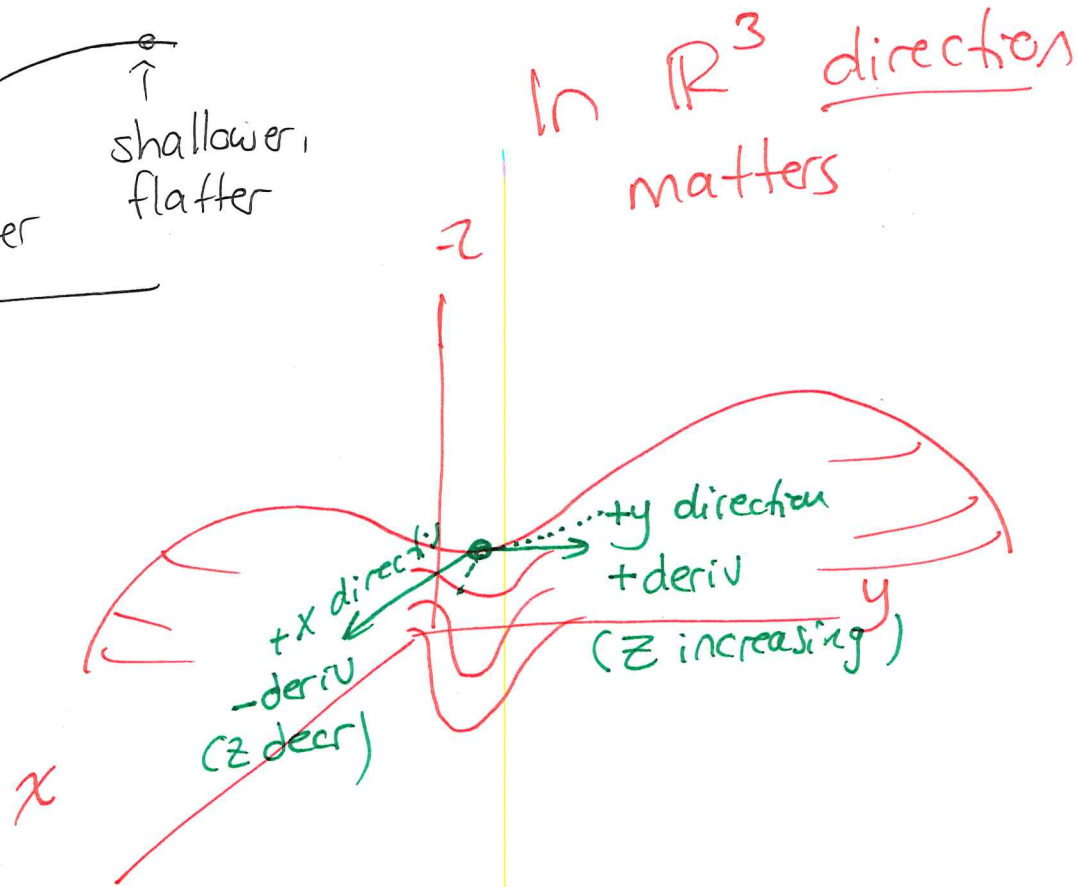 shallower,
flatter
er
In ℝ³ direction
matters
z
+y direction
+deriv
(z increasing)
y
+x directi
-deriv
(z decr)
x